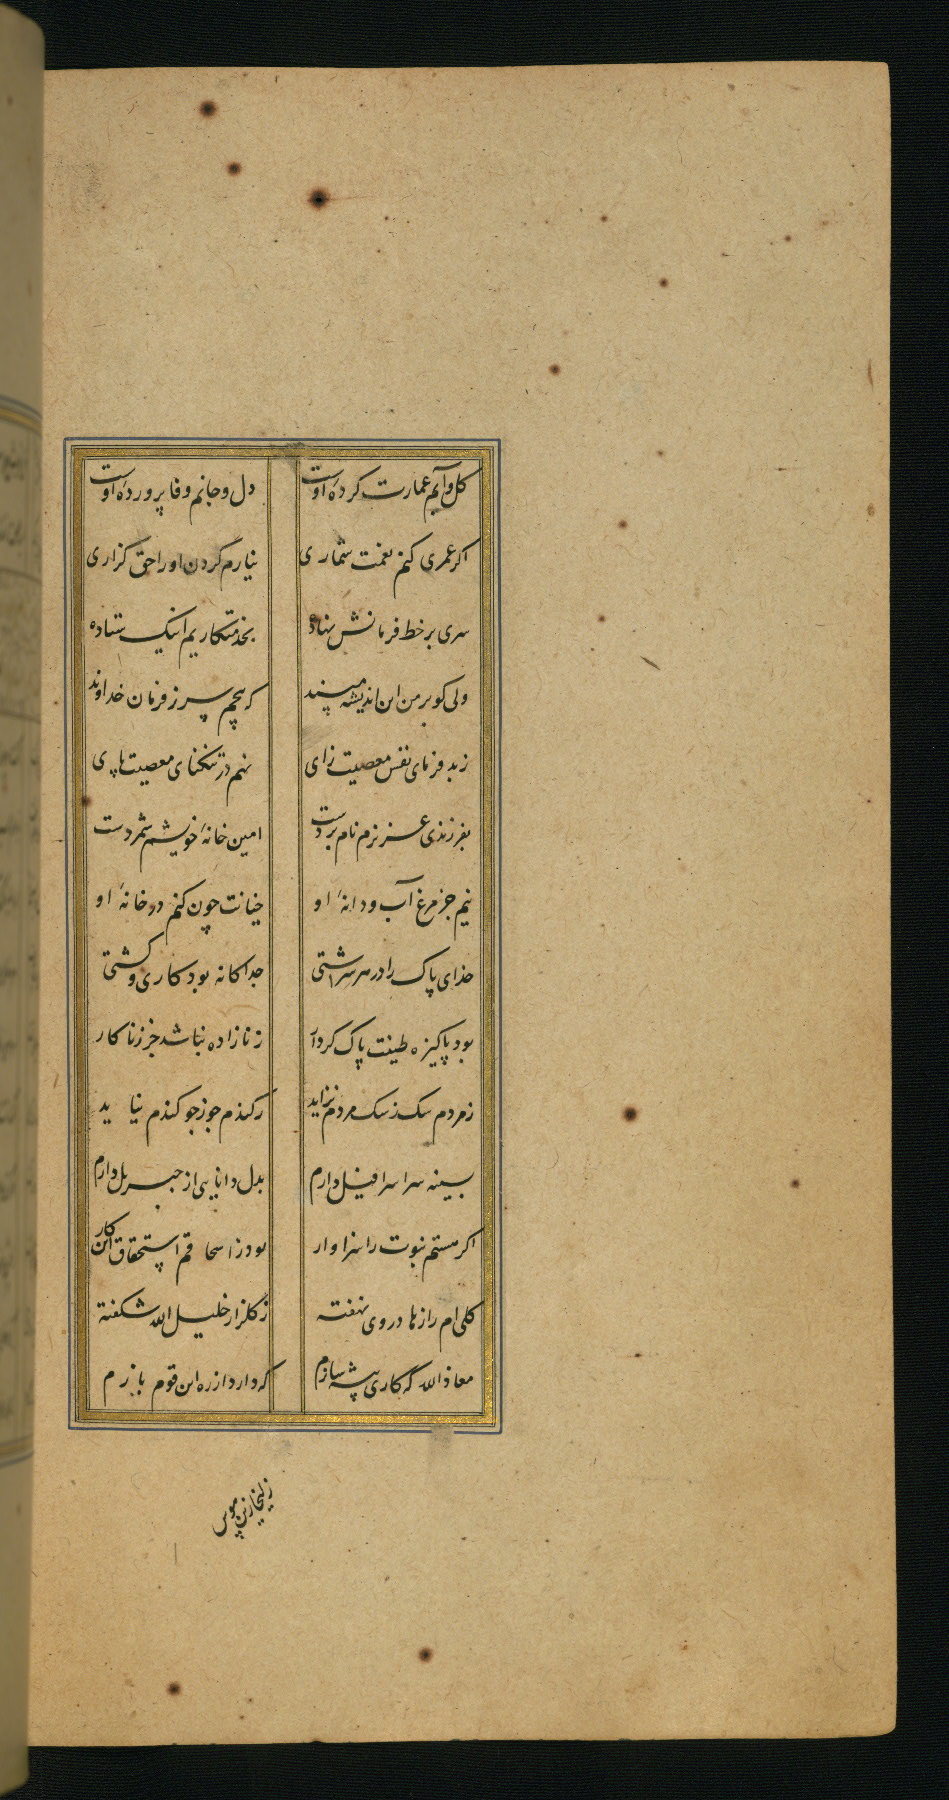 کل وآبم عمارت کرده اوست دل و جانم وفا پرورده اوست
اکر عمری کنم نعمت شماری نیارم کردن او را حق کزاری
سری بر خط فرمانش نهاده بخدمتکاریم اینک ستاده
ولی کو بر من این اندیشه مپسند که پیچم سر ز فرمان خداوند
ز بد فرمای نفس معصیت زای نهم در تنکنای معصیت پای
بفرزندی عزیزم نام بردست امین خانه خویشم شمردست
نیم جز مرغ آب و دانه او خیانت چون کنم در خانه او
خدای پاک را در هر سرشتی جداکانه بود کاری و کشتی
بود پاکیزه طینت پاک کردار زنازاده نباشد جز زناکار
ز مردم سک ز سک مردم نزاید ز کندم جو ز جو کندم نیاید
بسینه سر اسرافیل دارم بدل دانایی از جبریل دارم
اکر هستم نبوت را سزاوار بود ز اسحاقم استحقاق این کار
کلی ام رازها در وی نهفته ز کلزار خلیل الله شکفته
معاذ الله که کاری پیشه سازم که دارد از ره این قوم بازم
زلیخا زین هوس